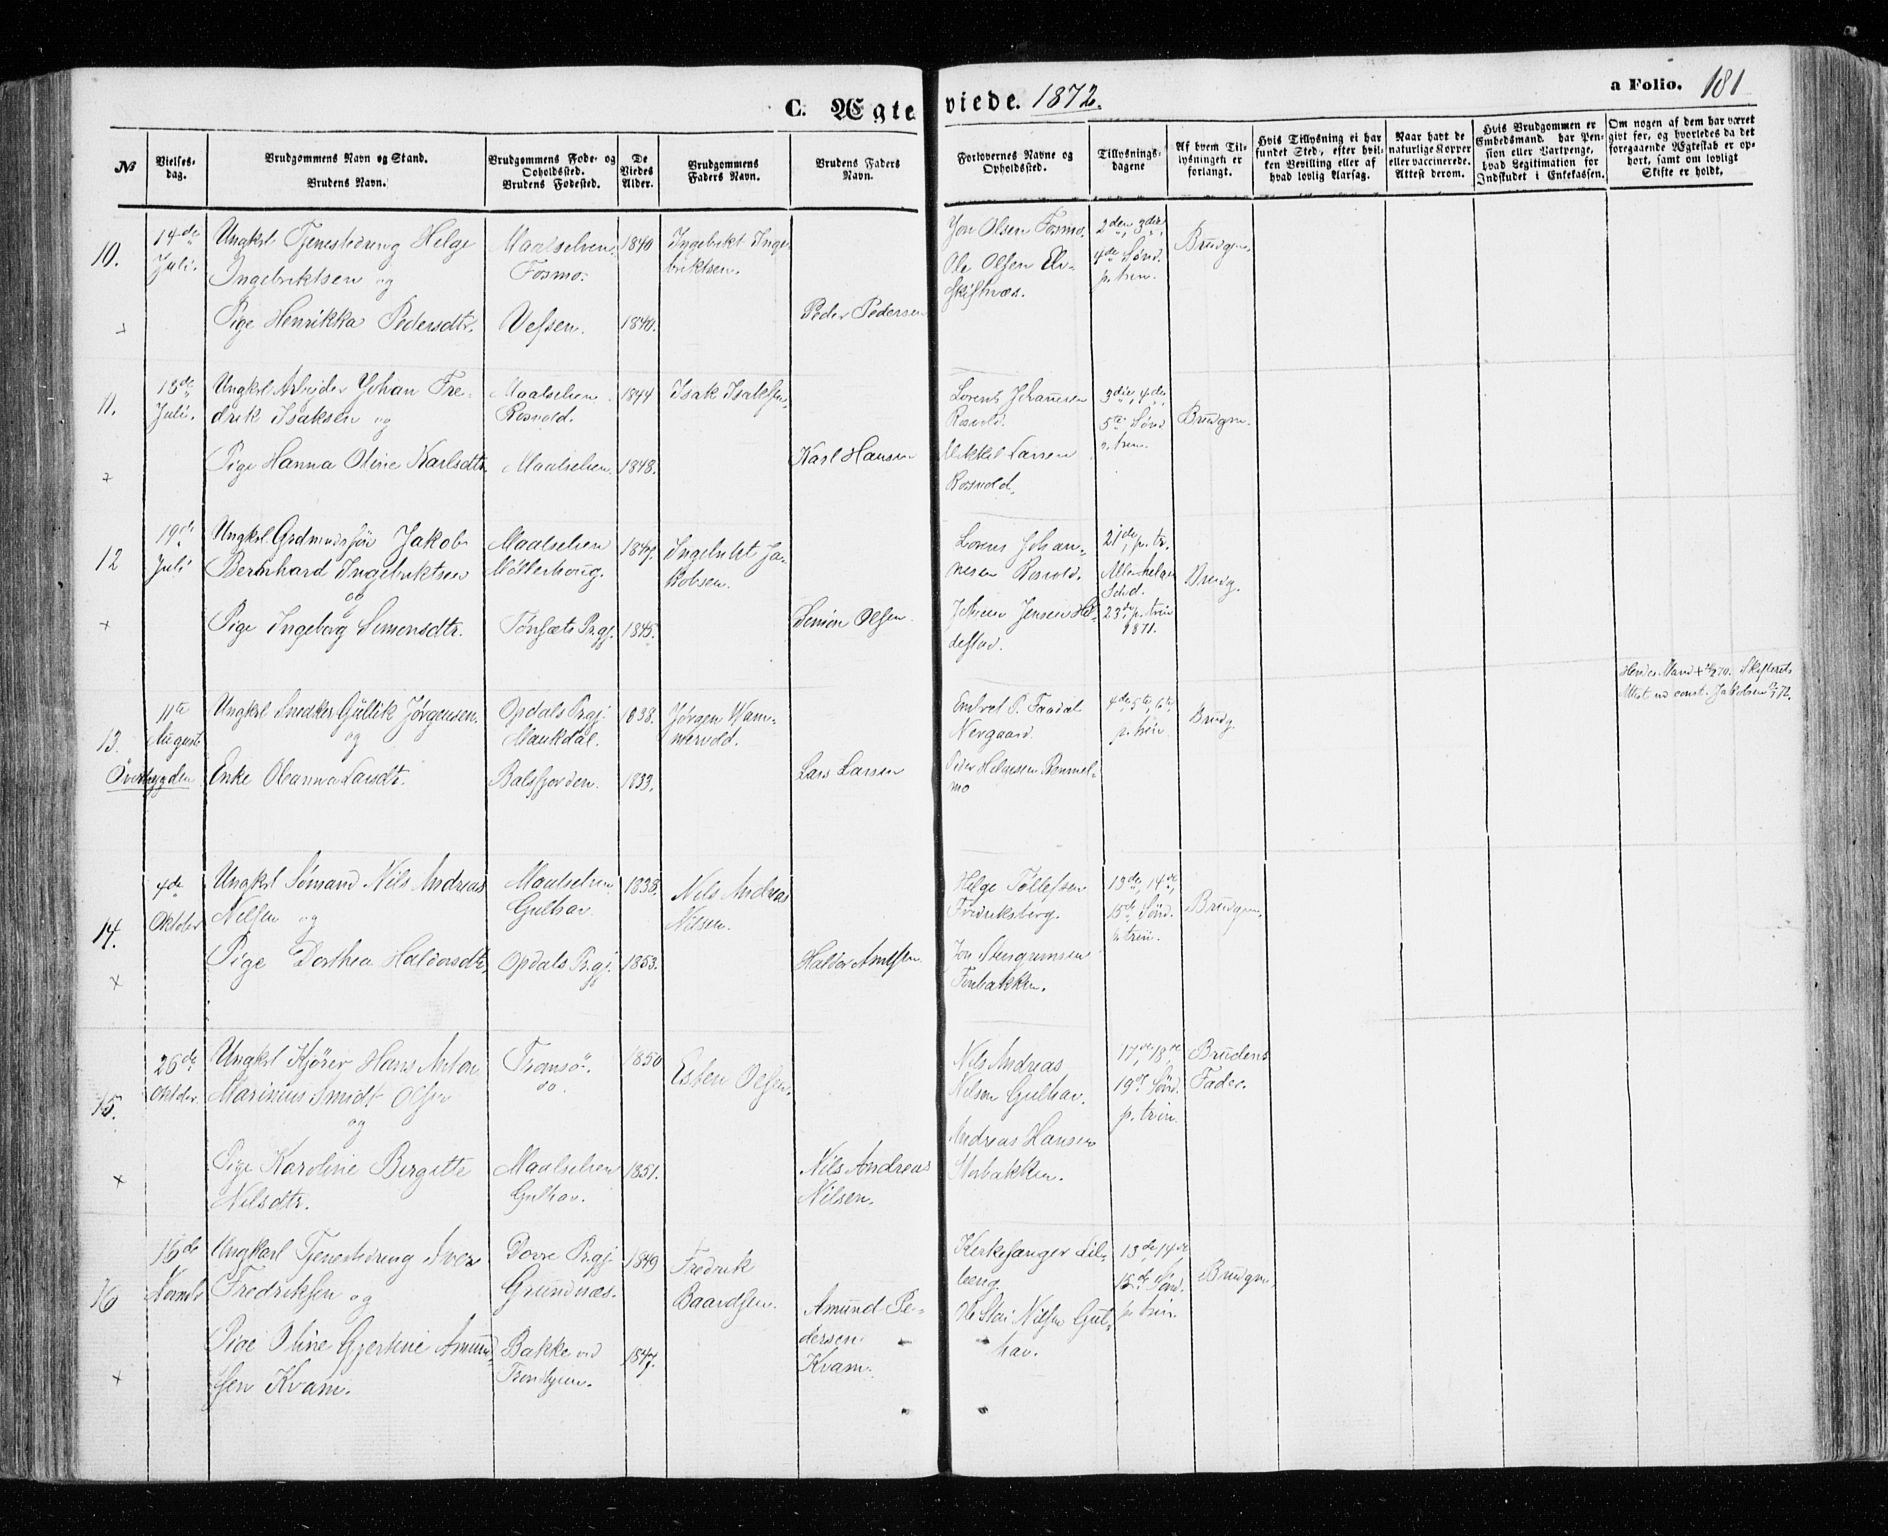 C. Ægteviede. 1872.
a Folio. 181
No
Vielses-
dag.
Brudgommens Navn og Stand.
Brudens Navn.
Brudgommens Føde- og
Opholdssted.
Brudens Fødested.
De
Viedes
Alder.
Brudgommens
Faders Navn.
Brudens Faders
Navn.
Forlovernes Navne og
Opholdssted.
Tillysnings-
dagene
Af hvem Til-
lysningen er
forlangt.
Hvis Tillysning ei har
fundet Sted, efter hvil-
ken Bevilling eller af
hvad lovlig Aarsag.
Naar havt de
naturlige Kopper
eller vaccinerede.
Attest derom.
Hvis Brudgommen er
Embedsmand, har Pen-
sion eller Vartpenge,
hvad Legitimation for
Indskudet i Enkekassen.
Om nogen af dem har været
gift før, og hvorledes da det
foregaaende Ægteskab er op-
hørt, samt om lovligt
Skifte er holdt.
10.
14de
Juli.
Ungkrl Tjenestedreng Helge
Ingebriktsen og
Pige Henrikka Pedersdtr.
Maalselven
Fosmo.
Vefsen.
1840
1840.
Ingebrikt Inge-
briktsen.
Peder Pedersen
Jon Olsen Fosmo.
Ole Olsen Elv-
skiftnæs.
2den, 3die,
4de Sønd.
p. trin.
Brudgm.
11.
13de
Juli.
Ungkrl Arbejder Johan Fre-
drik Isaksen og
Pige Hanna Oline Karlsdtr
Maalselven
Rosvold.
Maalselven
1844
1848.
Isak Isaksen,
Karl Hansen
Lorents Johannesen
Rosvold.
Mikkel Larsen
Rossvold.
3die, 4de,
5te Sønd
p. trin.
Brudgm.
12
19de
Juli
Ungkrl. Grdmandssøn Jakob
Bernhard Ingebriktsen
og
Pige Ingeborg Simonsdtr.
Maalselven
Møllerhoug.
Tønsæts Prgj.
1847.
1845.
Ingebrikt Ja-
kobsen.
Simon Olsen.
Lorens Johan-
nesen Rosvold.
Johan Jensen
21de p. tr.
Allehelgen
23de p. trin
1871.
Brudg.
13.
11te
August
Overbygden
Ungkrl Snedker Gullik Jørgensen.
og
Enke Oleanna Larsdtr.
Opdals Prgj.
Maukdal.
Balsfjorden.
1838.
1833.
Jørgen Wam-
mervold.
Lars Larsen
Embret P. Faadal
Nergaard.
Peder Helgesen Rommel-
mo
4de, 5te, 6te,
p. trin.
Brudg.
Hendes Mand + 70. Skifterets
Attest 72.
14.
4de
Oktober
Ungkrl Sømand Nils Andreas
Nilsen og
Pige Dorthea Haldorsdtr.
Maalselven
Gulhav.
Opdals Prgj.
1838.
1853.
Nils Andreas
Nilsen.
Haldor
Helge Tollefsen
Fredriksberg.
Jon Stengrimsen
Fonbakken.
13de, 14de,
15de Sønd.
p. trin.
Brudgm.
15.
26de
Oktober.
Ungkrl Kjører Hans Anton
Marinius Smidt Olsen
og
Pige Karoline Birgitte
Nilsdtr.
Tromsö.
Maalselven
Gulhav.
1850
1851.
Esten Olsen.
Nils Andreas
Nilsen.
Nils Andreas
Nilsen Gulhav.
Andreas Hansen
Storbakken.
17de 18de
19de Sønd.
p. trin.
Brudens
Fader.
16
16de
Novmbr
Ungkarl Tjenestedreng Iver
Fredriksen og
Pige Oline Gjertine Amund-
sen Kvam.
Dovre Prgj.
Grundnæs.
Bakke ved
Trondhjem.
1849
1847.
Fredrik
Baardsen.
Amund Pe-
dersen
Kvam.
Kirkesanger Lil-
beng
Nilsen Gul-
hav.
13de 14de
15de Sønd.
p. trin.
Brudgm.